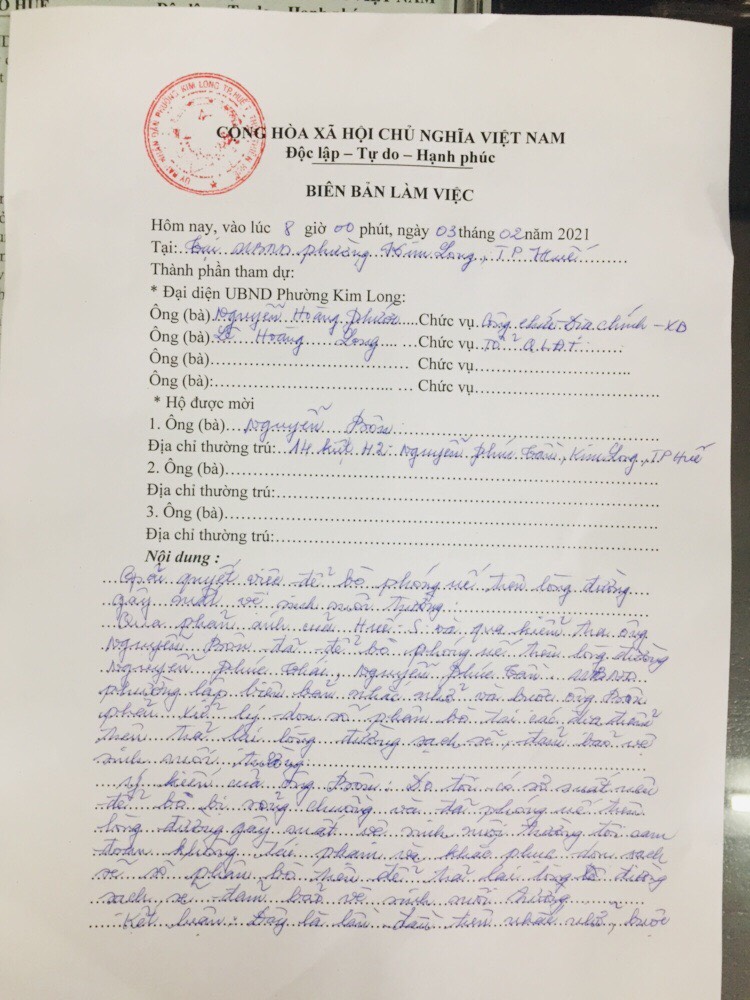 Ố HUẾ
ỆT NAM
ỦY BAN NHÂN DÂN PHƯỜNG KIM LONG TP. HUẾ
CỘNG HÒA XÃ HỘI CHỦ NGHĨA VIỆT NAM
Độc lập – Tự do – Hạnh phúc
BIÊN BẢN LÀM VIỆC
Hôm nay, vào lúc 8 giờ 00 phút, ngày 03 tháng 02 năm 2021
Tại: Tại UBND phường Kim Long, TP Huế
Thành phần tham dự:
* Đại diện UBND Phường Kim Long:
Ông (bà) Nguyễn Hoàng Phước Chức vụ Công chức Địa chính – XD
Ông (bà) Lê Hoàng Long Chức vụ Tổ QLĐT
Ông (bà) Chức vụ
Ông (bà): Chức vụ
* Hộ được mời
1. Ông (bà) Nguyễn Bôn
Địa chỉ thường trú: 14 kiệt 42 Nguyễn Phúc Tần, Kim Long, TP Huế
2. Ông (bà)
Địa chỉ thường trú:
3. Ông (bà)
Địa chỉ thường trú:
Nội dung :
Giải quyết việc để bò phóng uế trên lòng đường
gây mất vệ sinh môi trường.
Qua phản ánh của Huế-S và qua kiểm tra ông
Nguyễn Bôn đã để bò phóng uế trên lòng đường
Nguyễn Phúc Thái, Nguyễn Phúc Tần. UBND
phường lập biên bản nhắc nhở và buộc ông Bôn
phải xử lý dọn số phân bò tại các địa điểm
trên trả lại lòng đường sạch sẽ, đảm bảo vệ
sinh môi trường.
Ý kiến của ông Bôn: Do tôi có sơ suất nên
để bò bị sổng chuồng và đã phóng uế trên
lòng đường gây mất vệ sinh môi trường tôi cam
đoan không tái phạm và khắc phục dọn sạch
sẽ số phân bò trên để trả lại lòng đường
sạch sẽ đảm bảo vệ sinh môi trường.
Kết luận: Đây là lần đầu tiên nhắc nhở, buộc